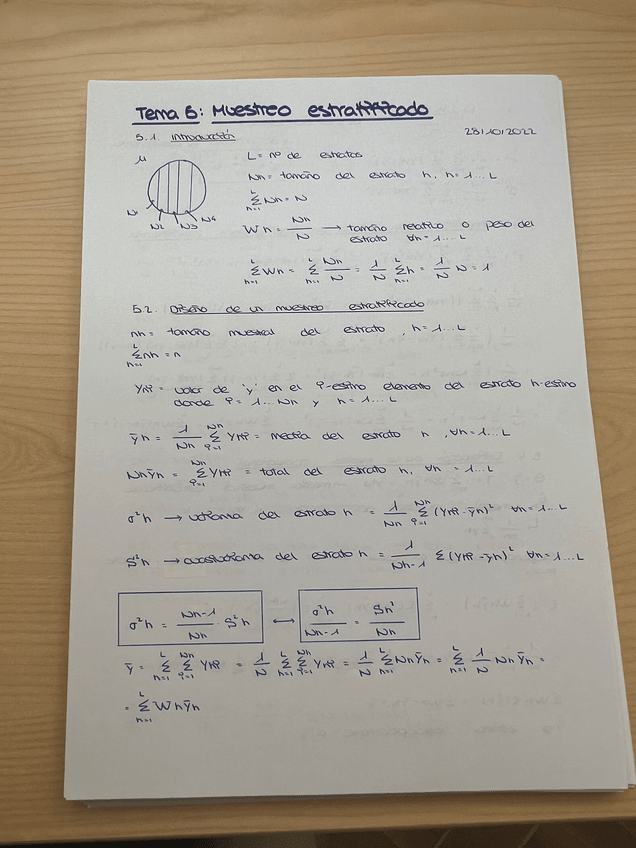 Tema 6: Muestreo estratificado
5.1 Introducción
28/10/2022
μ
N1 N2 N3 N4
L = nº de estratos
Nh = tamaño del estrato h, h = 1...L
∑_{h=1}^{L} Nh = N
Wh = Nh/N → tamaño relativo o peso del
estrato ∀h = 1...L
∑_{h=1}^{L} Wh = ∑_{h=1}^{L} Nh/N = 1/N ∑_{h=1}^{L} h = 1/N N = 1
5.2. Diseño de un muestreo estratificado
nh = tamaño muestral del estrato, h = 1...L
∑_{h=1}^{L} nh = n
Yhi = valor de 'y' en el i-ésimo elemento del estrato h-ésimo
donde i = 1...Nh y h = 1...L
ȳh = 1/Nh ∑_{i=1}^{Nh} Yhi = media del estrato h, ∀h = 1...L
Nhȳh = ∑_{i=1}^{Nh} Yhi = total del estrato h, ∀h = 1...L
σ²h → varianza del estrato h = 1/Nh ∑_{i=1}^{Nh} (Yhi - ȳh)² ∀h = 1...L
S²h → cuasivarianza del estrato h = 1/(Nh-1) ∑ (Yhi - ȳh)² ∀h = 1...L
σ²h = (Nh-1)/Nh · S²h ↔ σ²h/(Nh-1) = Sh²/Nh
ȳ = ∑_{h=1}^{L} ∑_{i=1}^{Nh} Yhi = 1/N ∑_{h=1}^{L} ∑_{i=1}^{Nh} Yhi = 1/N ∑_{h=1}^{L} Nhȳh = ∑_{h=1}^{L} 1/N Nhȳh =
= ∑_{h=1}^{L} Whȳh